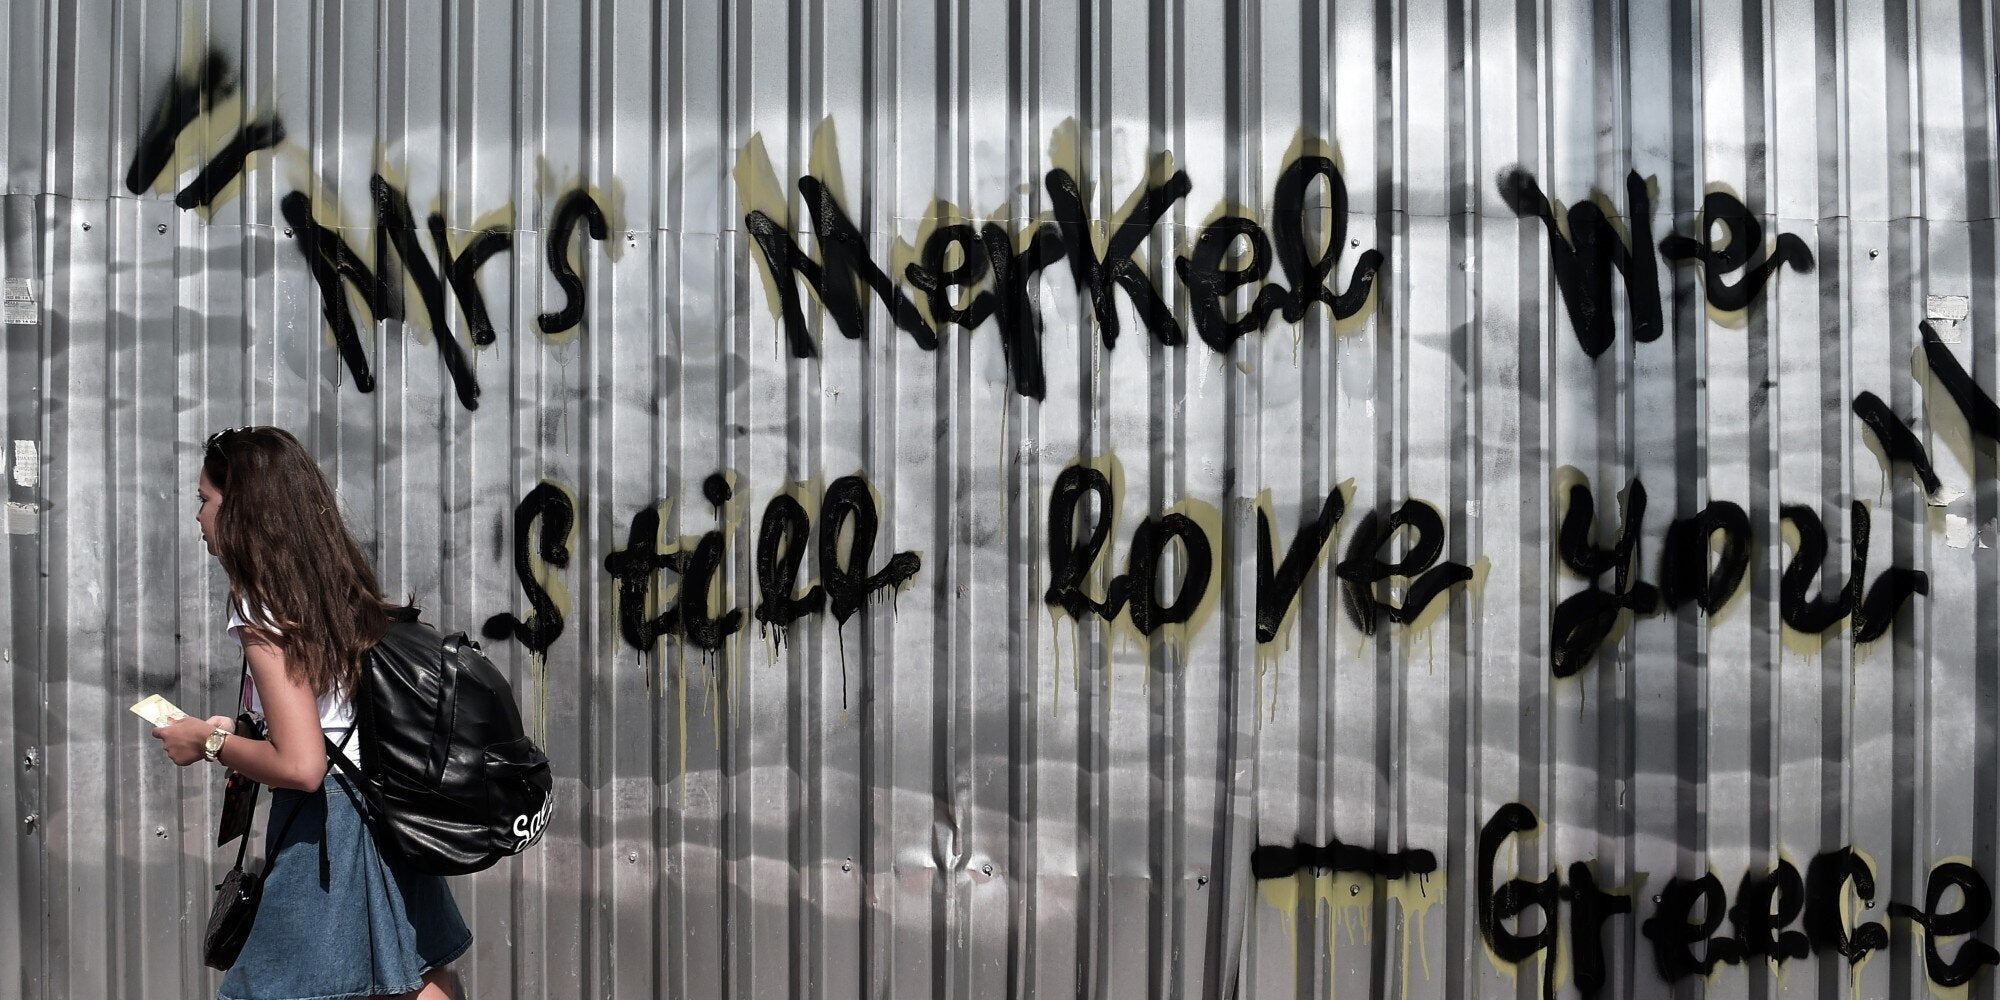 "Mrs Merkel We
Still love you"
— Greece